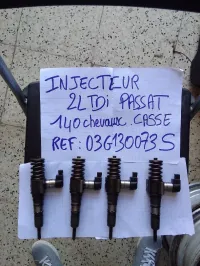 INJECTEUR
2LTDi PASSAT
140 chevaux . CASSE
REF : 03G130073S